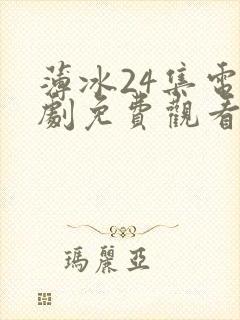 薄冰24集電
劇免費觀看
瑪麗亞